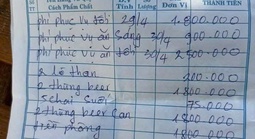 Cách Phẩm Chất Tính Lượng Đơn Vị THÀNH TIỀN
phí phục vụ 29/4 1.800.000
phí phục vụ ăn sáng 30/4 900.000
phí phục vụ 30/4 2.500.000
2 lò than 200.000
2 thùng beer 1800.000
5 chai suối 75.000
2 thùng beer Can 1800.000
phòng 1800.000